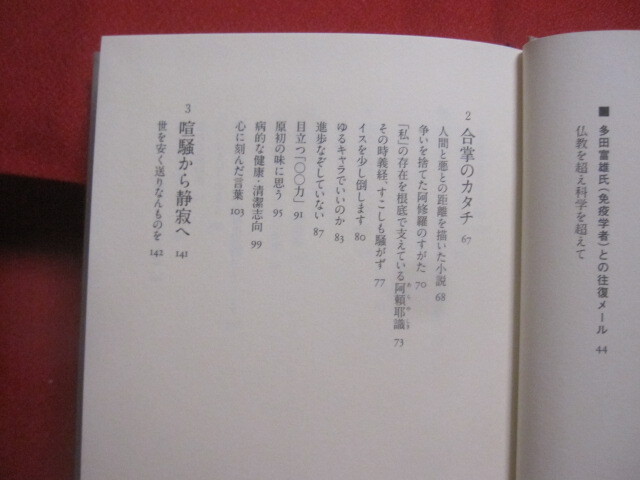 ■ 多田富雄氏(免疫学者)との往復メール 44
仏教を超え科学を超えて
2 合掌のカタチ 67
人間と悪との距離を描いた小説 68
争いを捨てた阿修羅のすがた 70
「私」の存在を根底で支えている阿頼耶識 73
その時義経、すこしも騒がず 77
イスを少し倒します 80
ゆるキャラでいいのか 83
進歩なぞしていない 87
目立つ「〇〇力」 91
原初の味に思う 95
病的な健康・清潔志向 99
心に刻んだ言葉 103
3 喧騒から静寂へ 141
世を安く送りなんものを 142